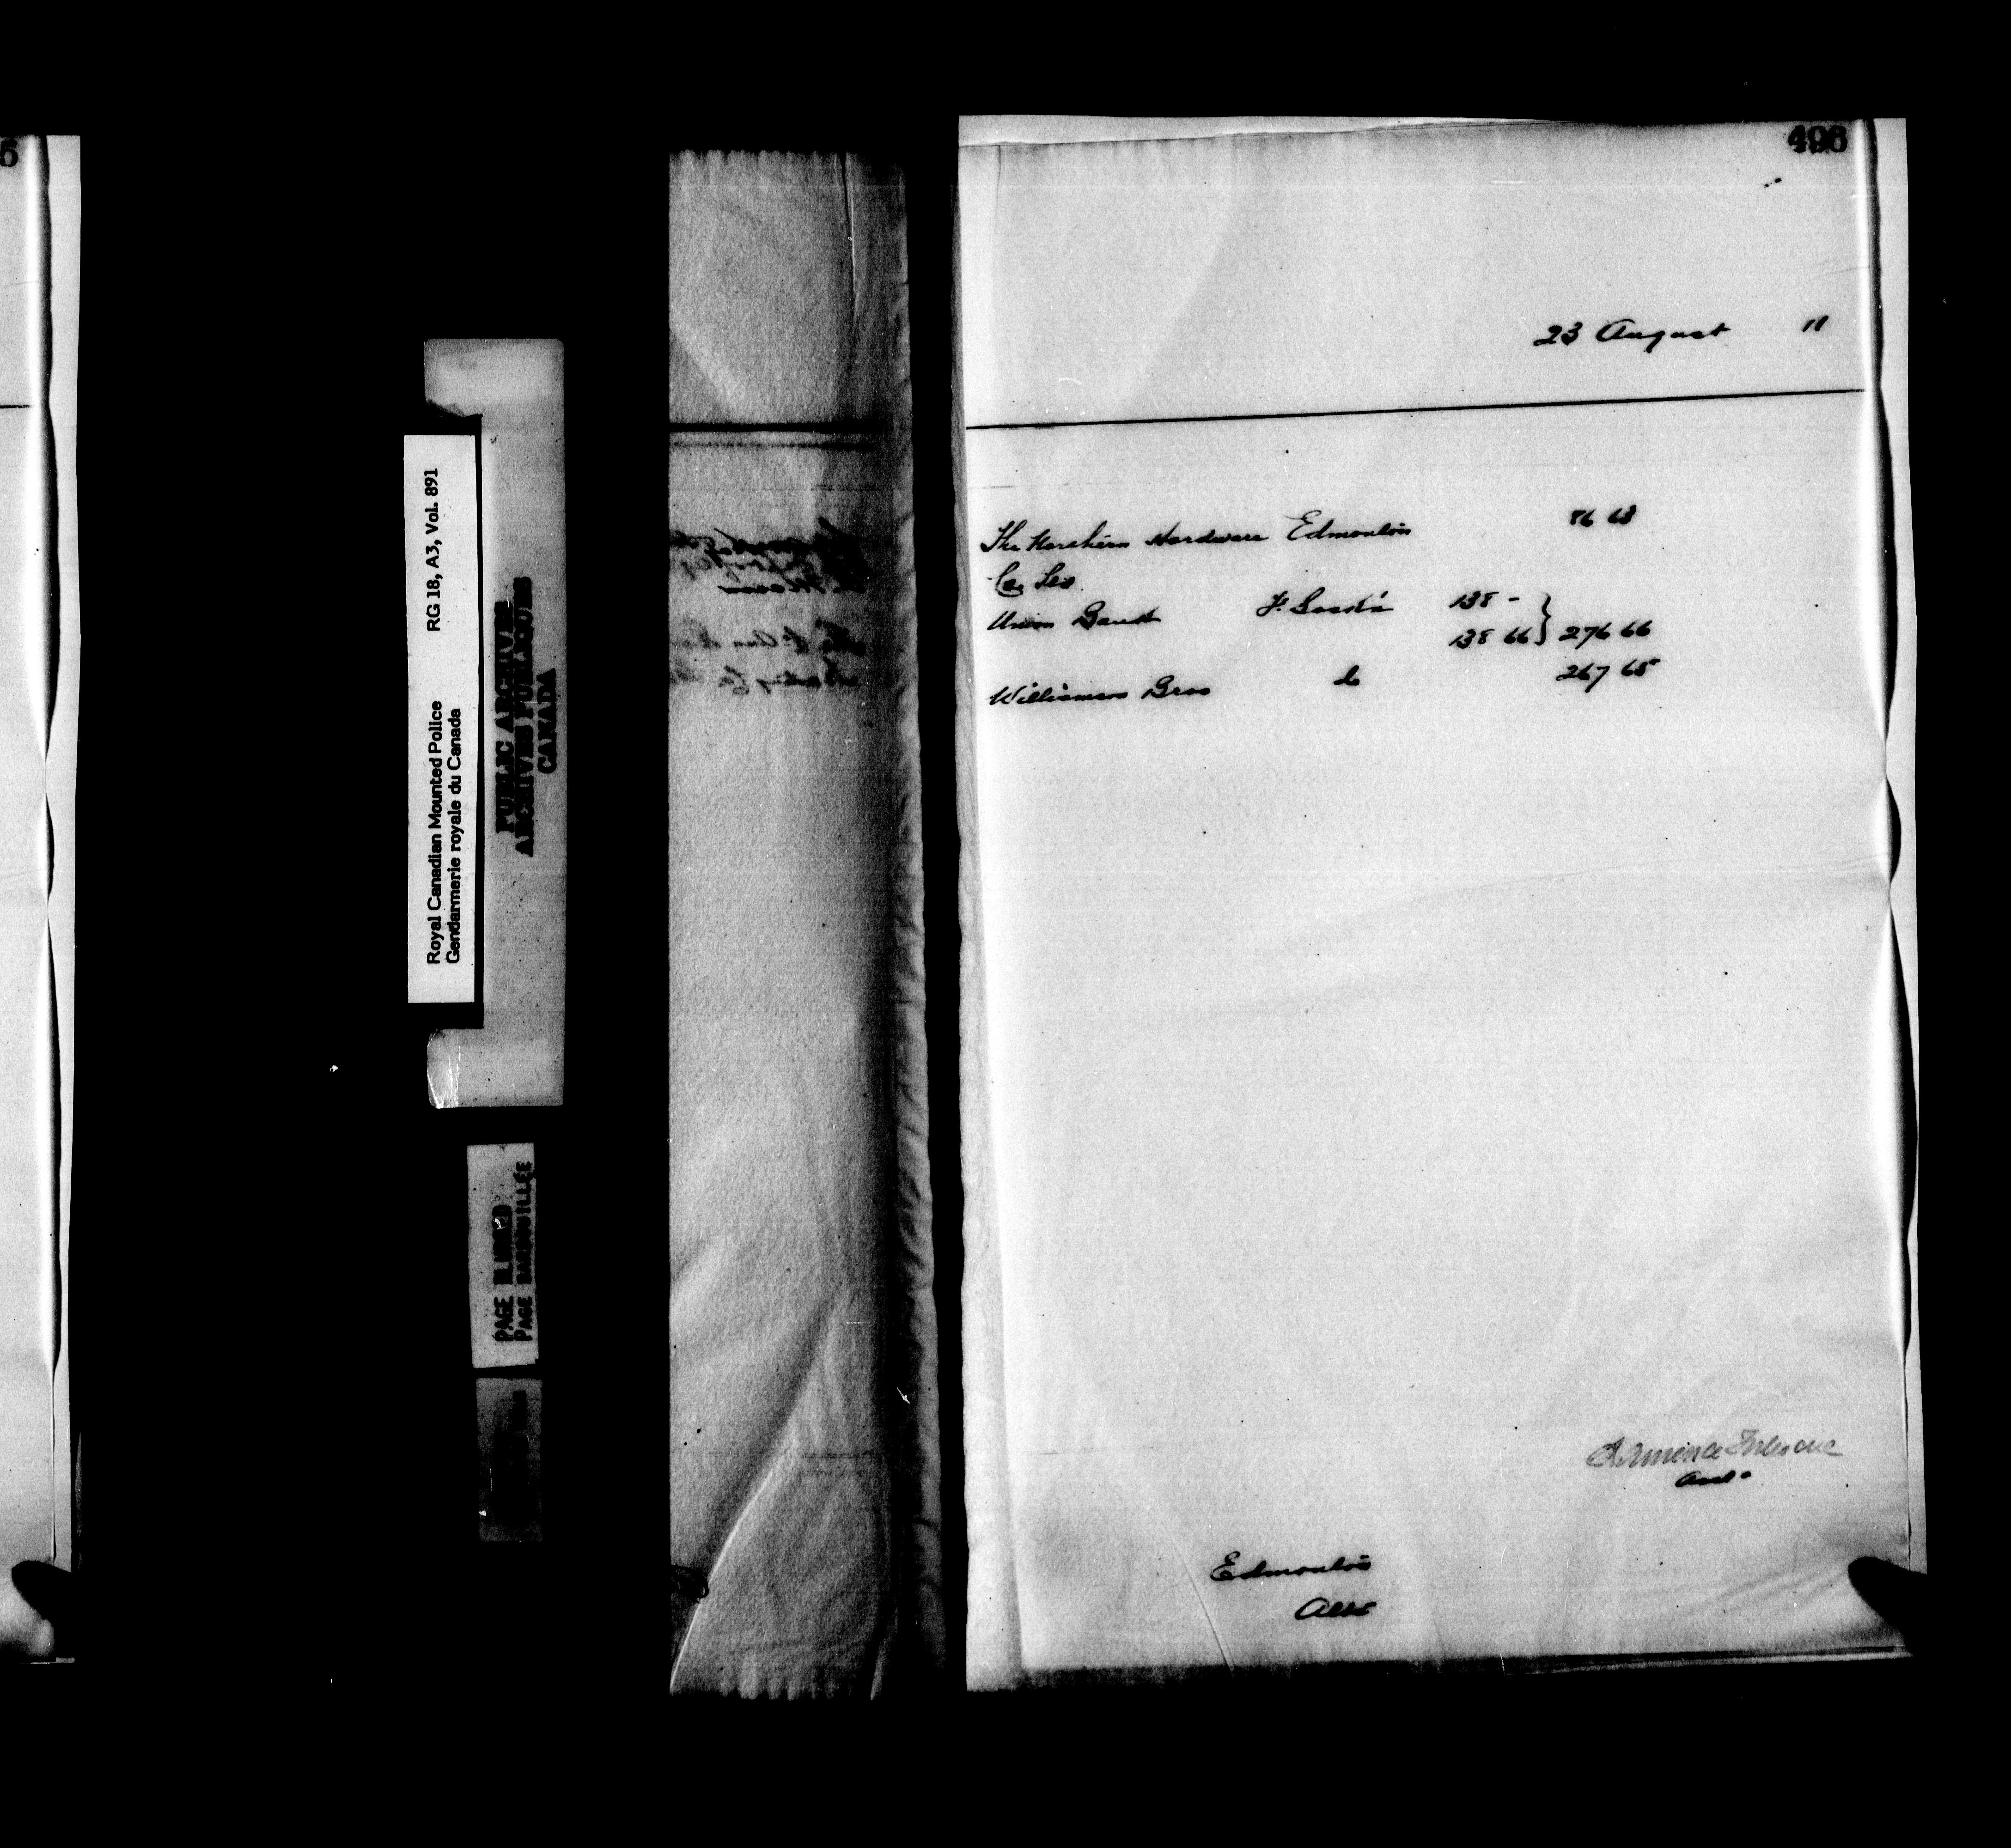 5
Royal Canadian Mounted Police RG 18, A3, Vol. 891
Gendarmerie royale du Canada
PUBLIC ARCHIVES
ARCHIVES PUBLIQUES
CANADA
PAGE BLURRED
PAGE BARBOUILLÉE
496
23 August 11
The Northern Hardware Edmonton 86 63
Co. Ltd.
Union Bank 138 -
138 66 } 276 66
Williamson Bros do 267 65
Edmonton
Alta